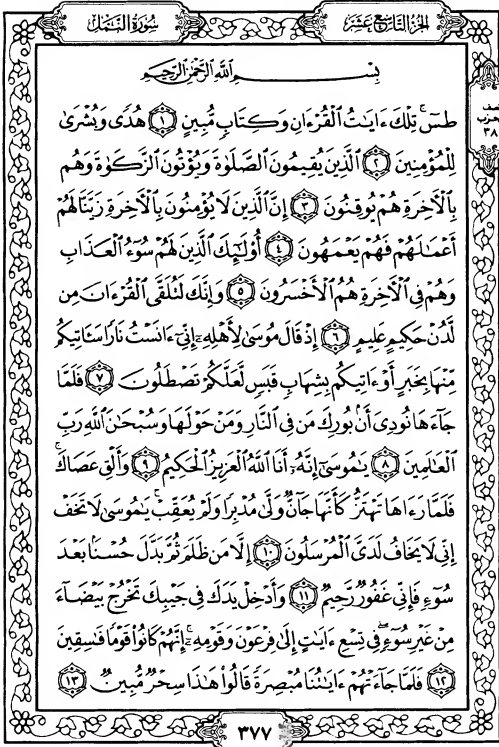 سُورَةُ النَّمْلِ
الجُزْءُ التَّاسِعَ عَشَرَ
بِسْمِ اللَّهِ الرَّحْمَٰنِ الرَّحِيمِ
طسٓ ۚ تِلْكَ ءَايَٰتُ الْقُرْءَانِ وَكِتَابٍ مُّبِينٍ ١ هُدًى وَبُشْرَىٰ
لِلْمُؤْمِنِينَ ٢ الَّذِينَ يُقِيمُونَ الصَّلَوٰةَ وَيُؤْتُونَ الزَّكَوٰةَ وَهُم
بِالْءَاخِرَةِ هُمْ يُوقِنُونَ ٣ إِنَّ الَّذِينَ لَا يُؤْمِنُونَ بِالْءَاخِرَةِ زَيَّنَّا لَهُمْ
أَعْمَٰلَهُمْ فَهُمْ يَعْمَهُونَ ٤ أُو۟لَٰٓئِكَ الَّذِينَ لَهُمْ سُوٓءُ الْعَذَابِ
وَهُمْ فِى الْءَاخِرَةِ هُمُ الْأَخْسَرُونَ ٥ وَإِنَّكَ لَتُلَقَّى الْقُرْءَانَ مِن
لَّدُنْ حَكِيمٍ عَلِيمٍ ٦ إِذْ قَالَ مُوسَىٰ لِأَهْلِهِۦٓ إِنِّىٓ ءَانَسْتُ نَارًا سَـَٔاتِيكُم
مِّنْهَا بِخَبَرٍ أَوْ ءَاتِيكُم بِشِهَابٍ قَبَسٍ لَّعَلَّكُمْ تَصْطَلُونَ ٧ فَلَمَّا
جَآءَهَا نُودِىَ أَنۢ بُورِكَ مَن فِى النَّارِ وَمَنْ حَوْلَهَا وَسُبْحَٰنَ اللَّهِ رَبِّ
الْعَٰلَمِينَ ٨ يَٰمُوسَىٰٓ إِنَّهُۥٓ أَنَا اللَّهُ الْعَزِيزُ الْحَكِيمُ ٩ وَأَلْقِ عَصَاكَ ۚ
فَلَمَّا رَءَاهَا تَهْتَزُّ كَأَنَّهَا جَآنٌّ وَلَّىٰ مُدْبِرًا وَلَمْ يُعَقِّبْ ۚ يَٰمُوسَىٰ لَا تَخَفْ
إِنِّى لَا يَخَافُ لَدَىَّ الْمُرْسَلُونَ ١٠ إِلَّا مَن ظَلَمَ ثُمَّ بَدَّلَ حُسْنًۢا بَعْدَ
سُوٓءٍ فَإِنِّى غَفُورٌ رَّحِيمٌ ١١ وَأَدْخِلْ يَدَكَ فِى جَيْبِكَ تَخْرُجْ بَيْضَآءَ
مِنْ غَيْرِ سُوٓءٍ ۖ فِى تِسْعِ ءَايَٰتٍ إِلَىٰ فِرْعَوْنَ وَقَوْمِهِۦٓ ۚ إِنَّهُمْ كَانُوا۟ قَوْمًا فَٰسِقِينَ
١٢ فَلَمَّا جَآءَتْهُمْ ءَايَٰتُنَا مُبْصِرَةً قَالُوا۟ هَٰذَا سِحْرٌ مُّبِينٌ ١٣
٣٧٧
٣٨